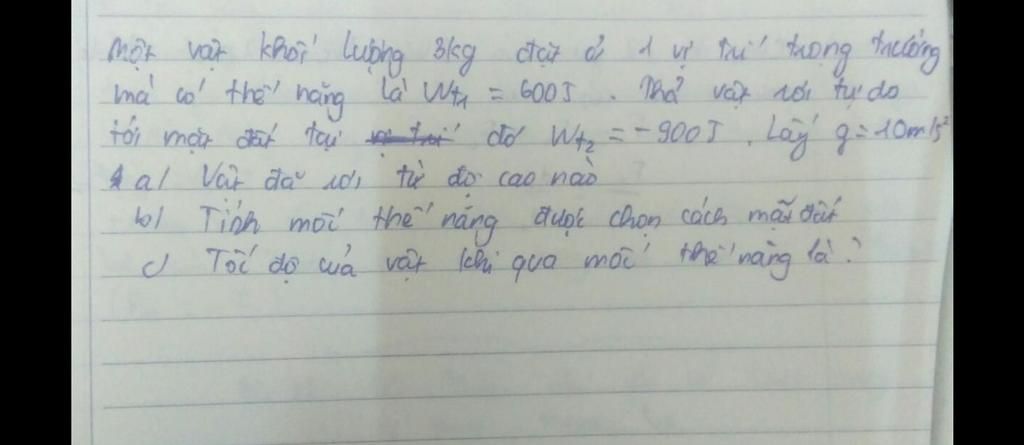 Một vật khối lượng 3kg đặt ở 1 vị trí trong trường
mà có thế năng là Wt1 = 600J. Thả vật rơi tự do
tới mặt đất tại đó Wt2 = -900J. Lấy g = 10m/s²
a/ Vật đã rơi từ độ cao nào
b/ Tính mốc thế năng được chọn cách mặt đất
c/ Tốc độ của vật khi qua mốc thế năng là?